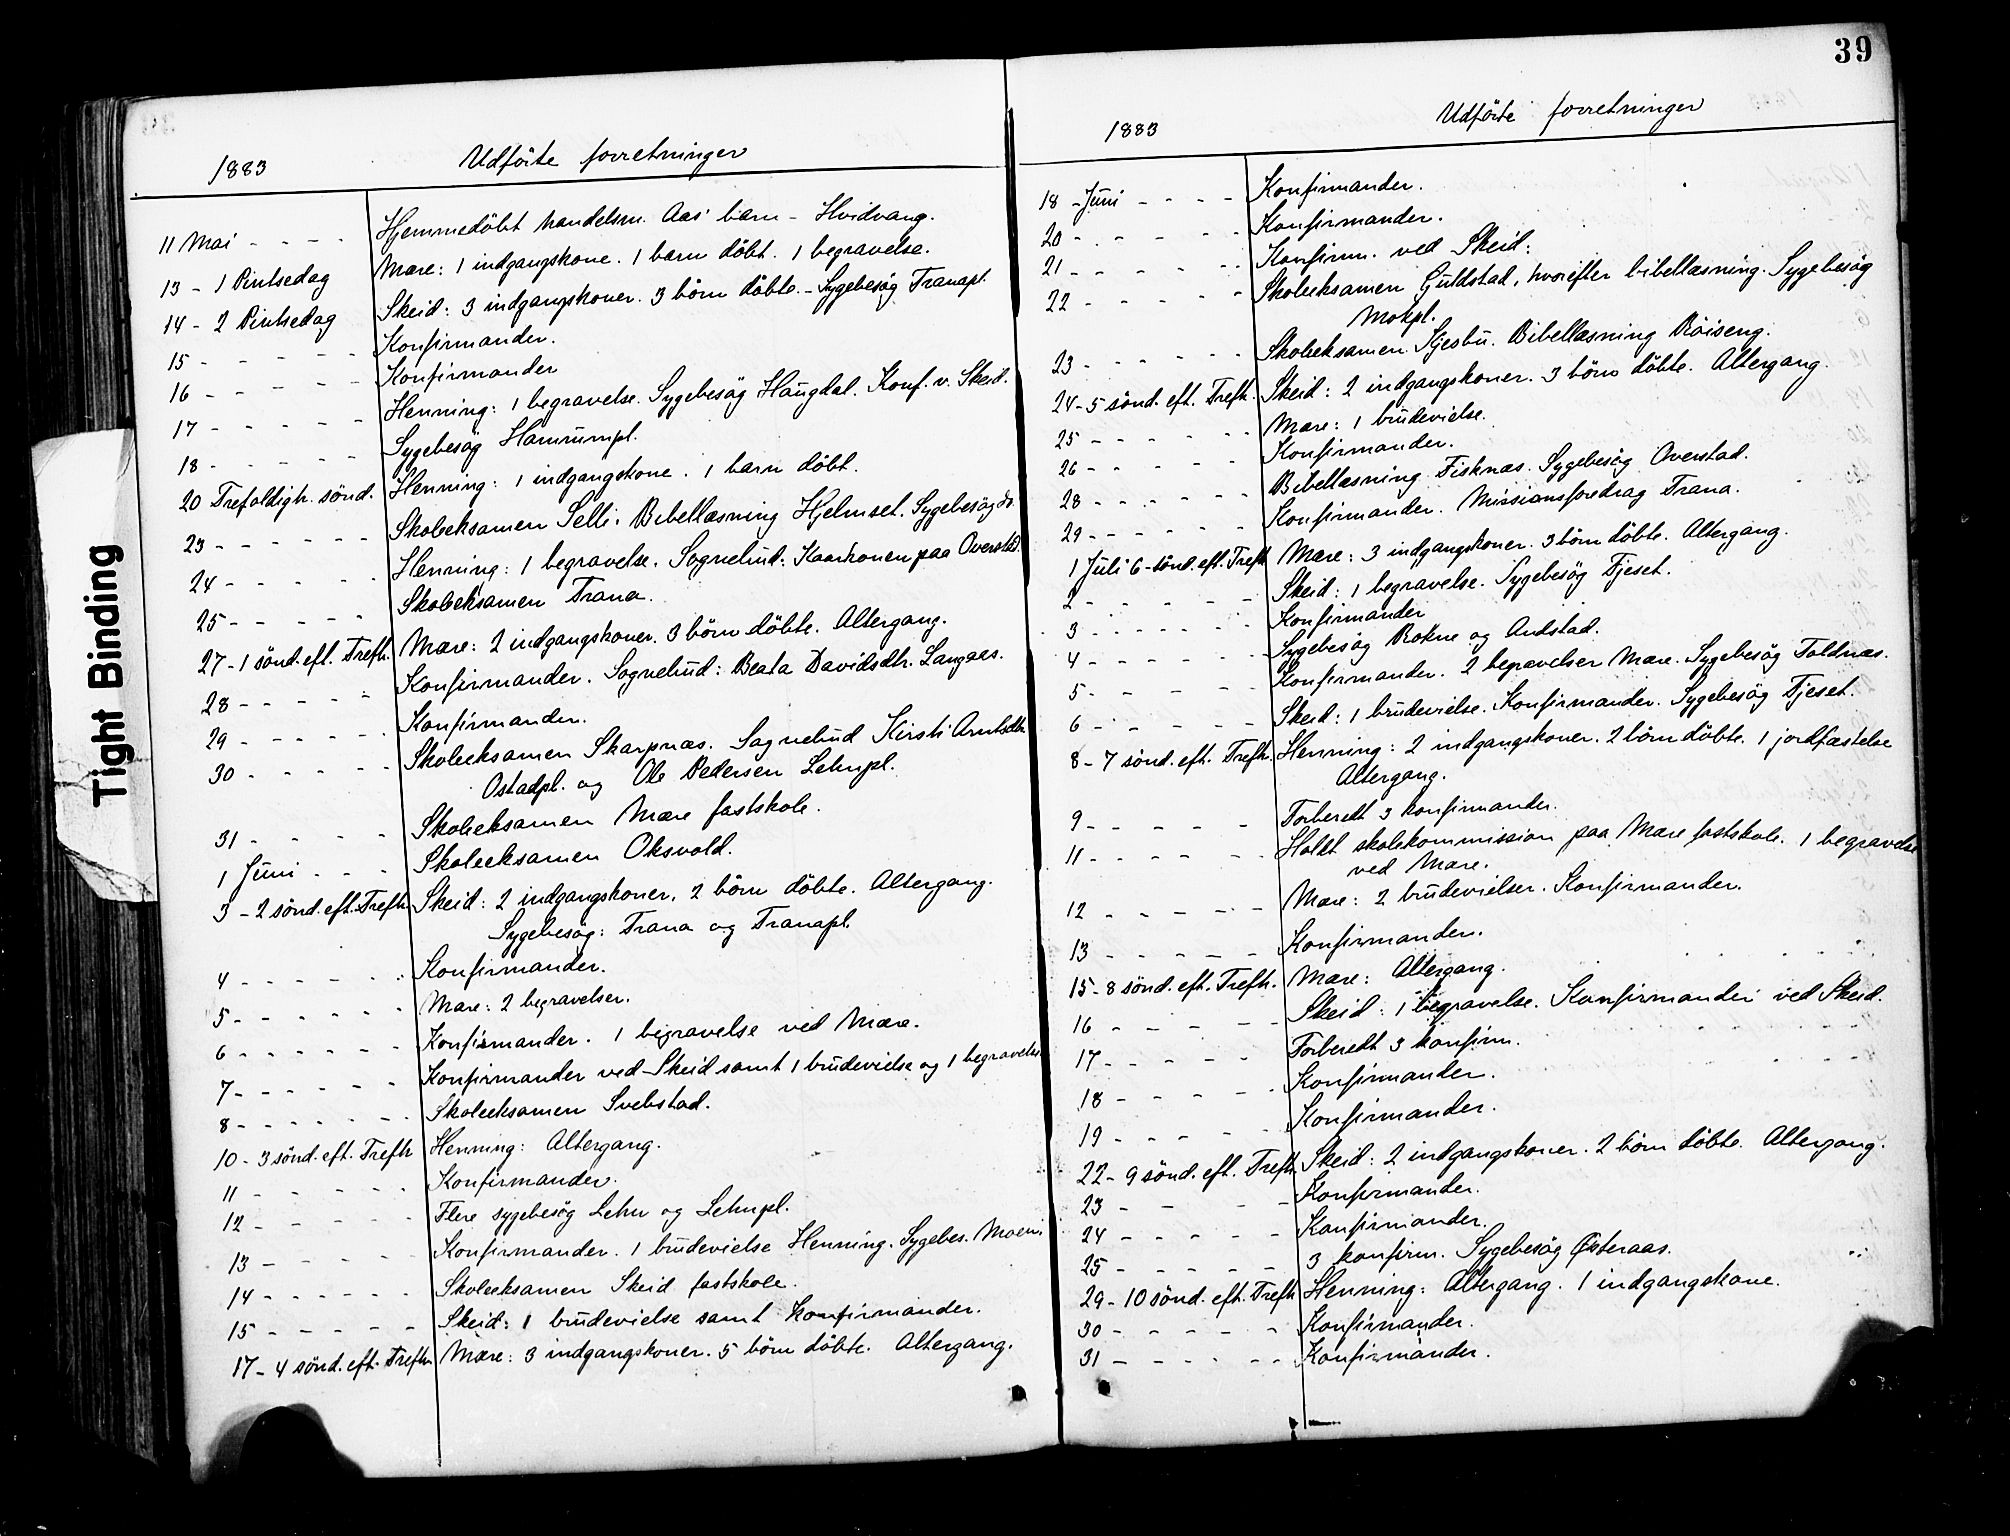 1883 Udförte forretninger
11 Mai - - - - Hjemmedöbt handelsm. Aas' barn - Hvidvang.
13 - 1 Pintsedag Mære: 1 indgangskone. 1 barn döbt. 1 begravelse.
14 - 2 Pintsedag Skeid: 3 indgangskoner. 3 börn döbte. - Sygebesög Tranapl.
15 - - - - - Konfirmander.
16 - - - - - Konfirmander
17 - - - - - Henning: 1 begravelse. Sygebesög Haugdal. Konf. v. Skeid.
18 - - - - - Sygebesög Hamrumpl.
20 Trefoldigh. sönd. Henning: 1 indgangskone. 1 barn döbt.
23 - - - - - - Skoleeksamen Selli. Bibellæsning Hjelmset. Sygebesög do.
24 - - - - - Henning: 1 begravelse. Sognebud: Kaarkonen paa Overstad.
25 - - - - - Skoleeksamen Trana.
27 - 1 sönd. eft. Trefh. Mære: 2 indgangskoner. 3 börn döbte. Altergang.
28 - - - - - Konfirmander. Sognebud: Beata Davidsdtr. Langaas.
29 - - - - - Konfirmander.
30 - - - - - Skoleeksamen Skarpnæs. Sognebud Kirsti Arntsdtr
Östadpl. og Ole Pedersen Lehnpl.
31 - - - - - Skoleeksamen Mære fastskole.
1 Juni - - - Skoleeksamen Oksvold.
3 - 2 sönd. eft. Trefh. Skeid: 2 indgangskoner, 2 börn döbte. Altergang.
Sygebesög: Trana og Tranapl.
4 - - - - - - Konfirmander.
5 - - - - - - Mære: 2 begravelser.
6 - - - - - - Konfirmander. 1 begravelse ved Mære.
7 - - - - - Konfirmander ved Skeid samt 1 brudevielse og 1 begravelse.
8 - - - - - - - Skoleeksamen Svebstad.
10 - 3 sönd. eft. Trefh Henning: Altergang.
11 - - - - - Konfirmander.
12 - - - - - Flere sygebesög Lehn og Lehnpl.
13 - - - - - Konfirmander. 1 brudevielse Henning. Sygebes. Moem.
14 - - - - - - Skoleeksamen Skeid fastskole.
15 - - - - - Skeid: 1 brudevielse samt konfirmander.
17 - 4 sönd. eft. Trefh. Mære: 3 indgangskoner. 5 börn döbte. Altergang.
39
1883 Udförte forretninger
18 - Juni - - - - Konfirmander.
20 - - - - - - Konfirmander.
21 - - - - - - Konfirm. ved Skeid.
22 - - - - - - Skoleeksamen Guldstad, hvorefter bibellæsning. Sygebesög
Mokpl.
23 - - - - - - Skoleeksamen Kjesbu. Bibellæsning Röiseng.
24 - 5 sönd. eft. Trefh. Skeid: 2 indgangskoner. 3 börn döbte. Altergang.
25 - - - - - - Mære: 1 brudevielse.
26 - - - - - - Konfirmander.
28 - - - - - - Bibellæsning Fisknæs. Sygebesög Overstad.
29 - - - - - - Konfirmander. Missionsforedrag Trana.
1 Juli 6 - sönd. eft. Trefh Mære: 3 indgangskoner. 3 börn döbte. Altergang.
2 - - - - - - Skeid: 1 begravelse. Sygebesög Tjeset.
3 - - - - - - Konfirmander
4 - - - - - - Sygebesög Rokne og Andstad.
5 - - - - - - Konfirmander. 2 begravelser Mære. Sygebesög Toldnæs.
6 - - - - - - Skeid: 1 brudevielse. Konfirmander. Sygebesög Tjeset.
8 - 7 sönd. eft. Trefh. Henning: 2 indgangskoner. 2 börn döbte. 1 jordfæstelse
Altergang.
9 - - - - - Forberedt 3 konfirmander.
11 - - - - - - Holdt skolekommission paa Mære fastskole. 1 begravelse
ved Mære.
12 - - - - - Mære: 2 brudevielser. Konfirmander.
13 - - - - - Konfirmander.
15 - 8 sönd. eft. Trefh. Mære: Altergang.
16 - - - - - Skeid: 1 begravelse. Konfirmander ved Skeid.
17 - - - - - Forberedt 3 konfirm.
18 - - - - - Konfirmander.
19 - - - - - Konfirmander.
22 - 9 sönd. eft. Trefh. Skeid: 2 indgangskoner. 2 börn döbte. Altergang.
23 - - - - Konfirmander.
24 - - - - - Konfirmander.
25 - - - - - 3 konfirm. Sygebesög Østeraas.
29 - 10 sönd. eft. Trefh Henning: Altergang. 1 indgangskone.
30 - - - - - Konfirmander.
31 - - - - - - Konfirmander.
Tight Binding